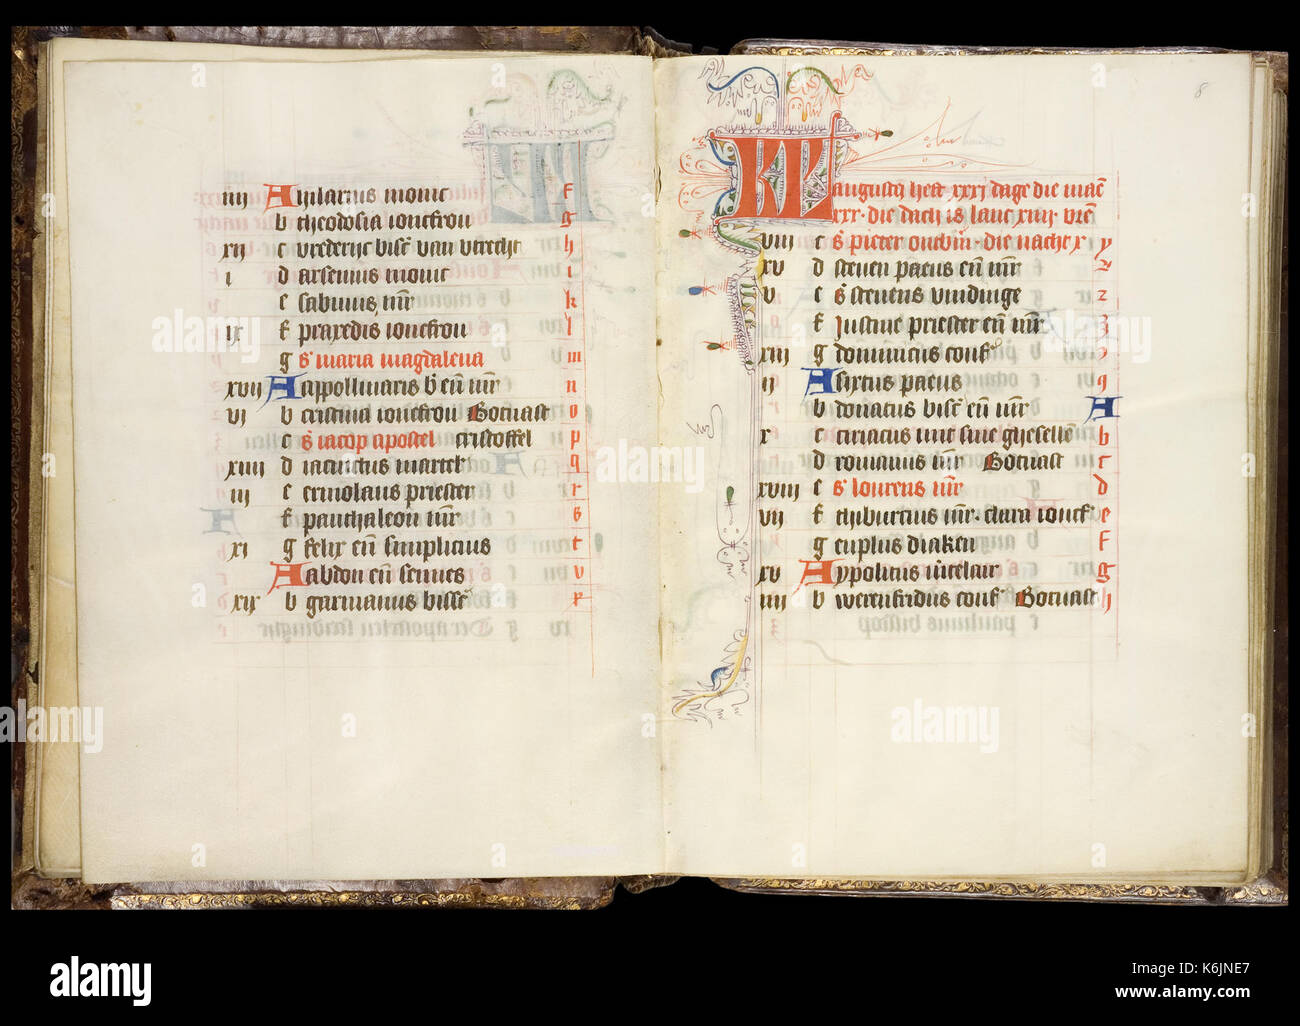 iiij A hilarius monic f
b theodosia ioncfrou g
xij c vrederijc bisc van vtrecht h
i d arsenius monic i
e sabinus mr k
ix f praxedis ioncfrou l
g s maria magdalena m
xvij A appollinaris b en mr n
vj b cristina ioncfrou Botvast o
c s iacop apostel cristoffel p
xiiij d iacinctus martel q
iij e ermolaus priester r
f panthaleon mr s
xj g felix en simplicius t
A abdon en sennes v
xix b garmanus bissc x
8
KL augustq heft xxxj dage die maen
xxx. die dach is lanc xiiij vren
viij c s pieter onebin. die nacht x y
xv d steven paeus en mr z
v e s stevens vindinge 2
f justine priester en mr 3
xiij g dominicus conf
ij A sixtus paeus 9
b donatus bisc en mr A
x c ciriacus mit sine ghesellen b
d romanus mr Botvast c
xviij e s lourens mr d
vij f tyburcius mr. clara ioncf e
g euplus diaken f
xv A ypolitus martelaer g
iiij b werenfridus conf Botvast h
alamy
Image ID: K6JNE7
www.alamy.com